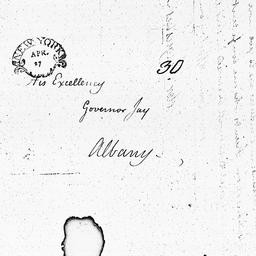 NEW YORK
APR.
17
30
His Excellency
Governor Jay
Albany